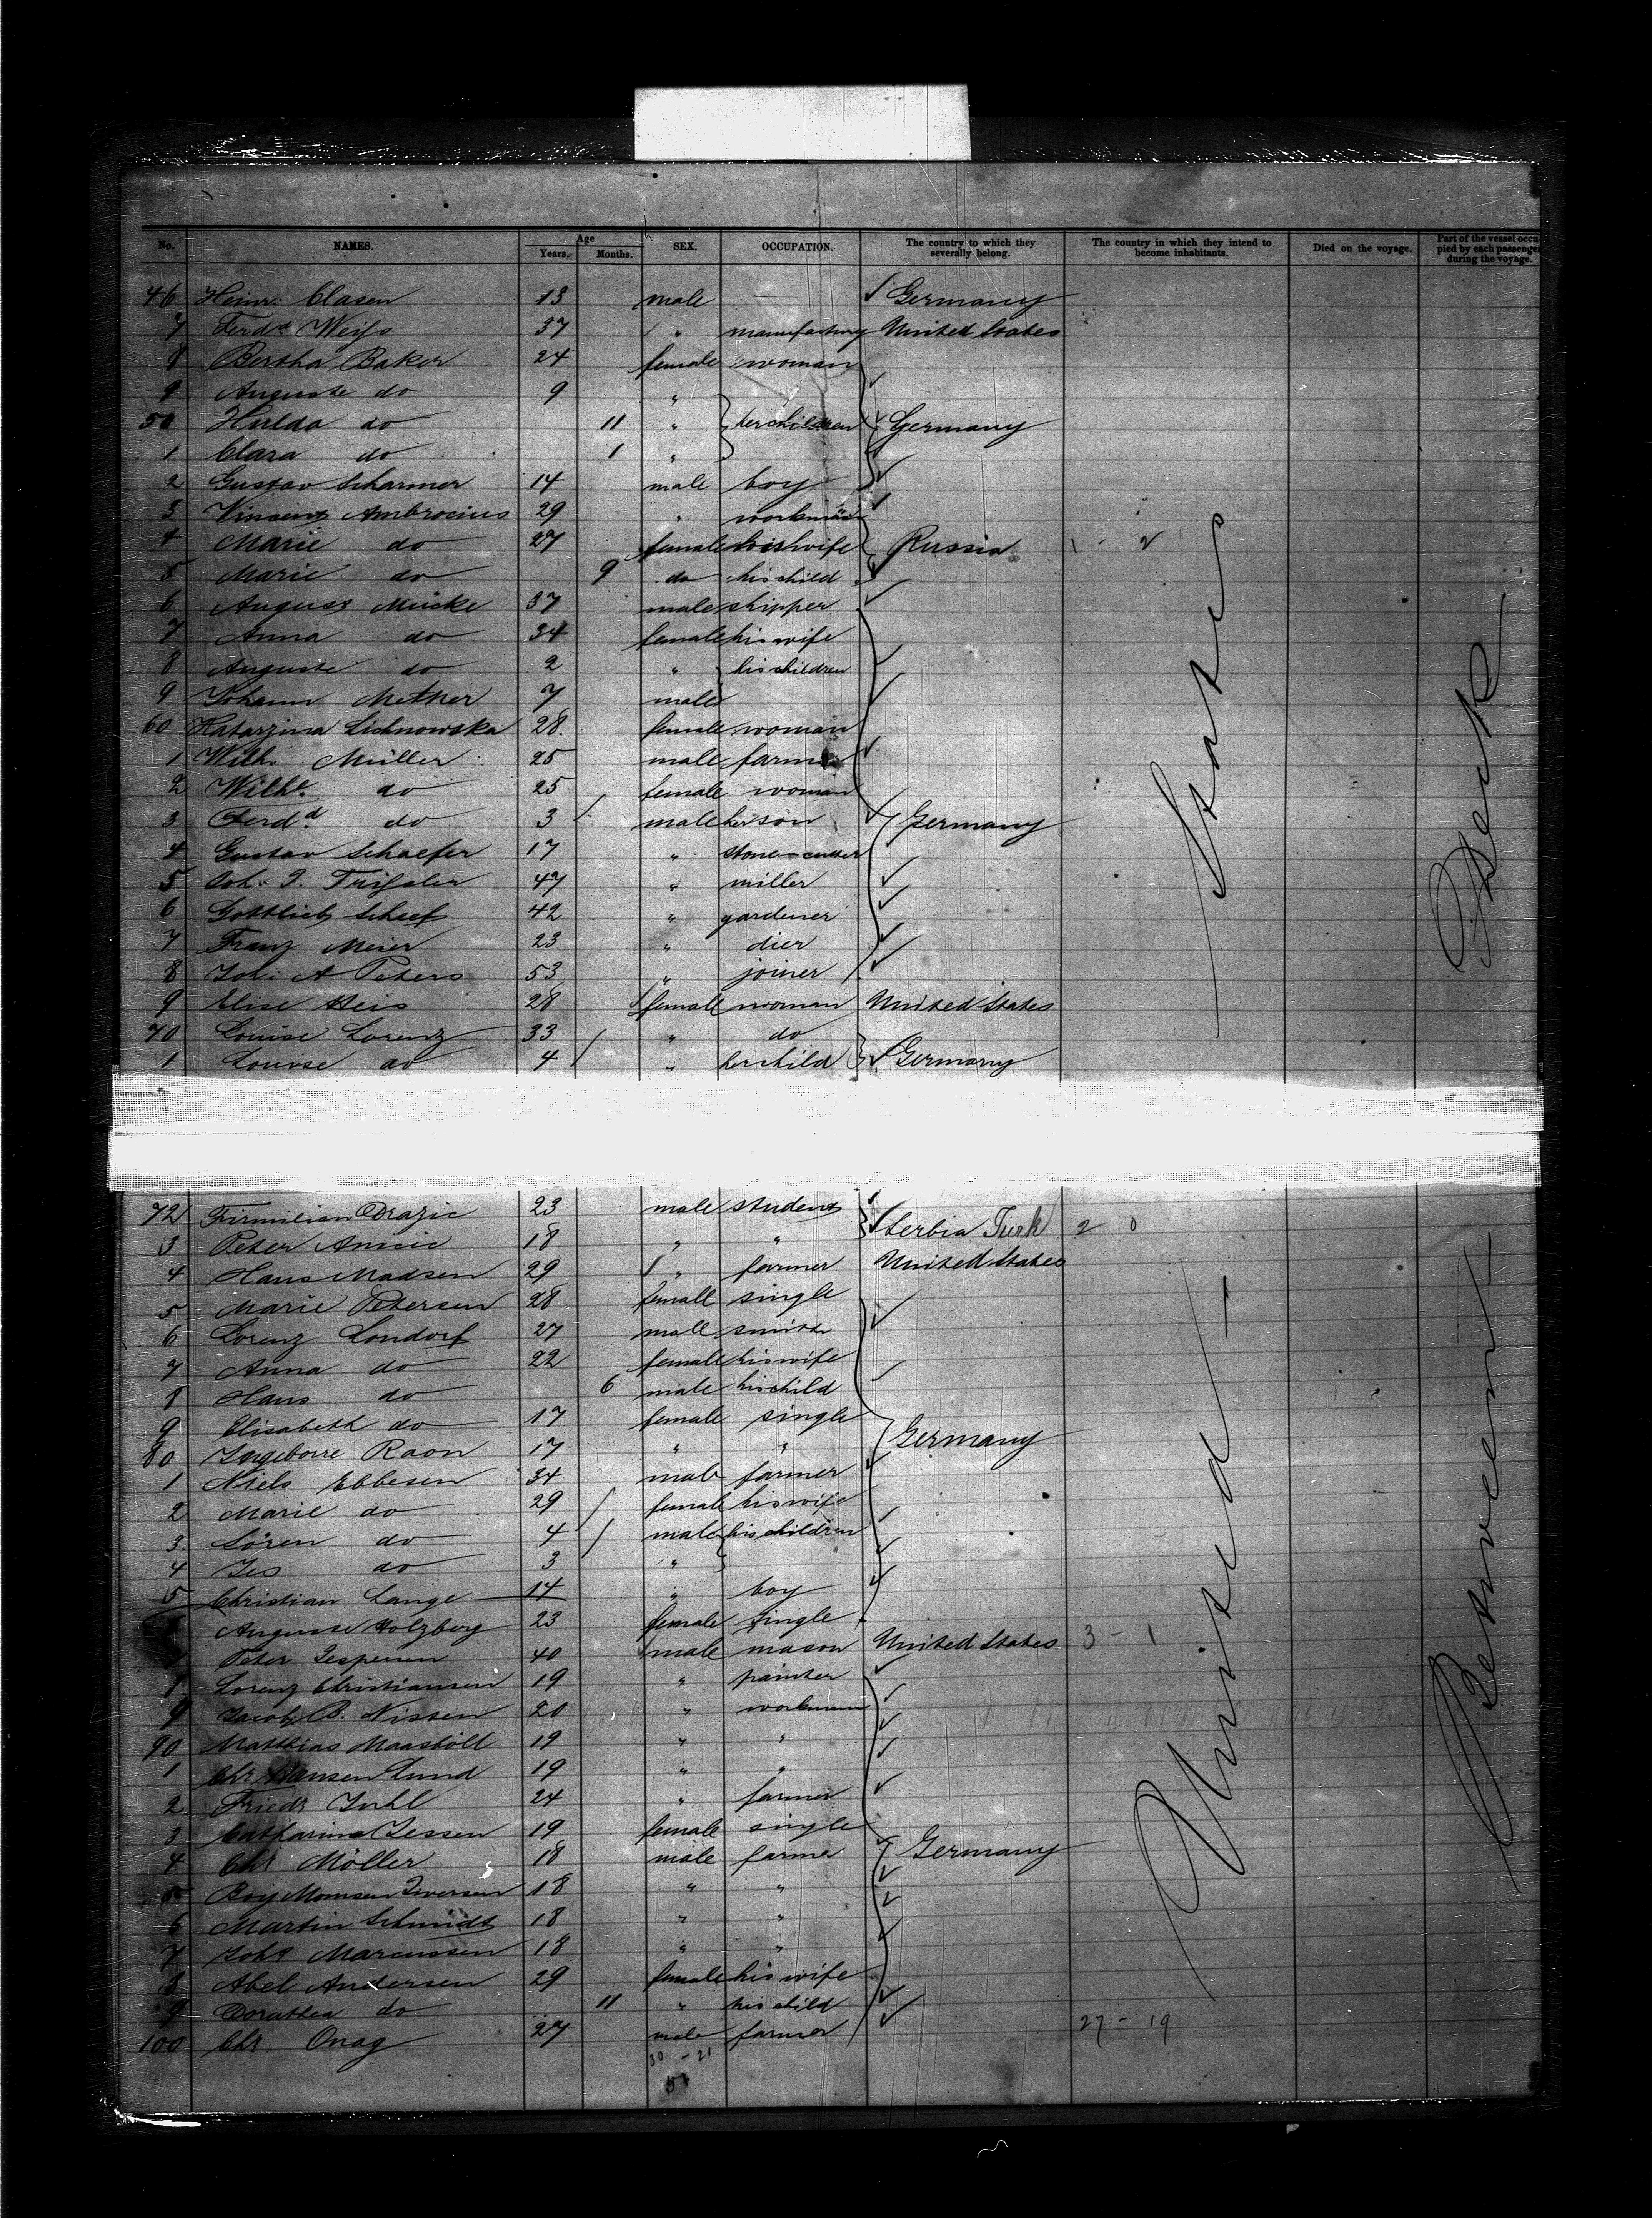 No. NAMES. Age Years. Months. SEX. OCCUPATION. The country to which they severally belong. The country in which they intend to become inhabitants. Died on the voyage. Part of the vessel occupied by each passenger during the voyage.
46 Heinr. Clasen 13 male Germany
7 Ferdd Weifs 37 " manufactury United States
8 Bertha Baker 24 female woman
9 Auguste do 9 "
50 Hulda do 11 " her children Germany
1 Clara do 1 "
2 Gustav Scharmer 14 male boy
3 Vincenz Ambrocius 29 " workman
4 Marie do 27 female his wife Russia 1 - 2
5 Marie do 9 do his child
6 August Mücke 37 male shipper
7 Anna do 34 female his wife
8 Auguste do 2 " his children
9 Johann Methner 7 male
60 Katarzina Lichnowska 28. female woman
1 Wilh. Müller 25 male farmer
2 Wilhe. do 25 female woman
3 Ferdd do 3 male her son Germany
4 Gustav Schaefer 17 " stone-cutter
5 Joh. 47 " miller
6 Gottlieb Scheef 42 " gardener
7 Franz Meier 23 " dier
8 Joh. A Peters 53 " joiner
9 Elise Heis 28 female woman United States
70 Louise Lorenz 33 " do
1 Louise do 4 " her child Germany
72 Firmilian Drazic 23 male student
3 Peter Anicic 18 " " Serbia Turk 2 0
4 Hans Madsen 29 " farmer United States
5 Marie Petersen 28 female single
6 Lorenz Londorf 27 male smith
7 Anna do 22 female his wife
8 Hans do 6 male his child
9 Elisabeth do 17 female single
80 Ingeborre Raon 17 " " Germany
1 Niels Ebbesen 34 male farmer
2 Marie do 29 female his wife
3. Sören do 4 male his children
4 Jes do 3 "
5 Christian Lange 14 " boy
Auguste Holzberg 23 female single
Peter Jespersen 40 male mason United States 3 - 1
Lorenz Christiansen 19 " painter
9 Jacob B. Nissen 20 " workman
90 Matthias Maasböll 19 " "
1 Chr Hansen Lund 19 " "
2 Friedr Juhl 24 " farmer
3 Catharina Jessen 19 female single
4 Chr Möller 18 male farmer Germany
5 Boy Momsen Iwersen 18 " "
6 Martin Schmidt 18 " "
7 Johs Marcussen 18 " "
8 Abel Andersen 29 female his wife
9 Dorothea do 11 " his child
100 Chr. Onag 27 male farmer 27 - 19
30 - 21
51
United States
Between Deck